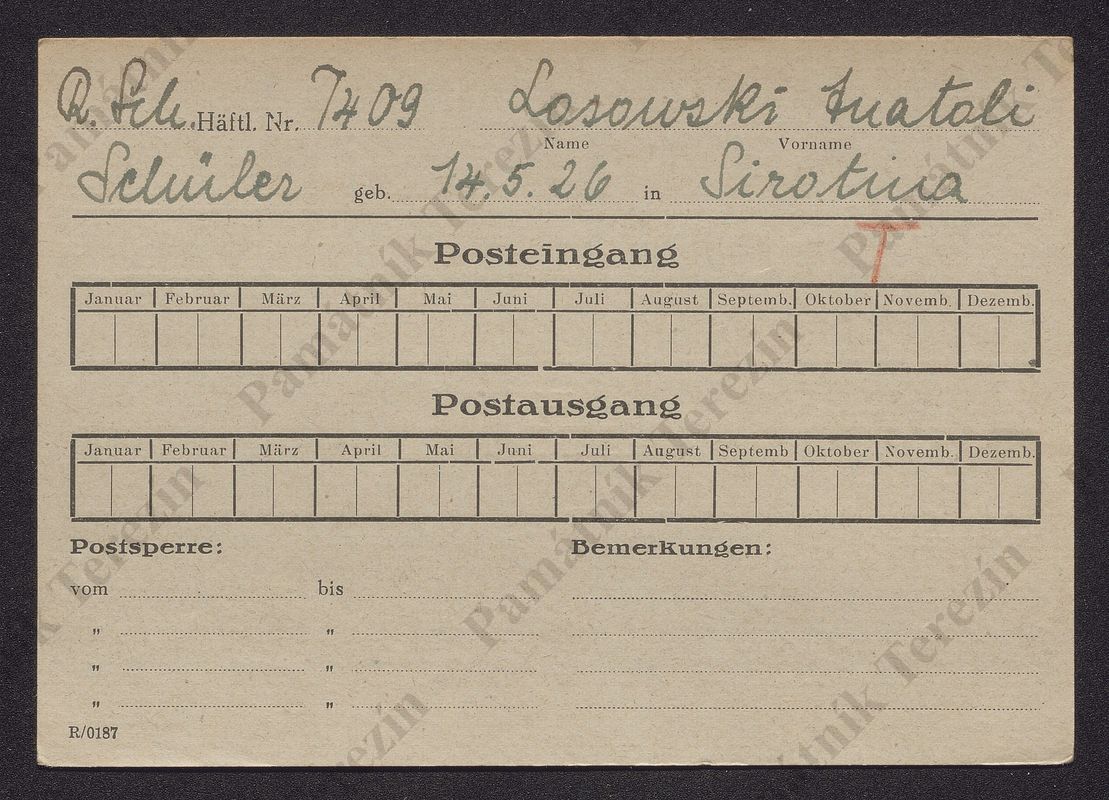 R. Sch. Häftl. Nr. 7409 Losowski Anatoli
Name Vorname
Schüler geb. 14.5.26 in Sirotina
T
Posteingang
Januar Februar März April Mai Juni Juli August Septemb. Oktober Novemb. Dezemb.
Postausgang
Januar Februar März April Mai Juni Juli August Septemb Oktober Novemb. Dezemb.
Postsperre: Bemerkungen:
vom bis
" "
" "
" "
R/0187
Památník Terezín